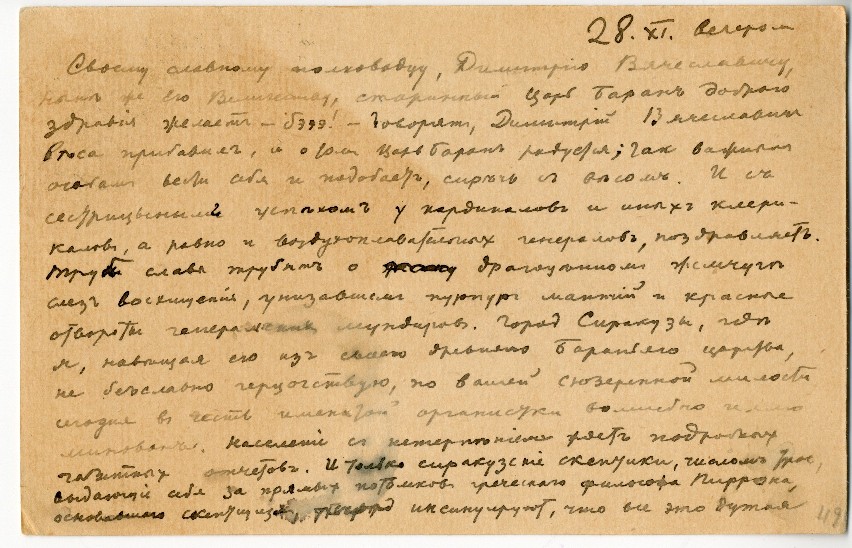 28. XI. вечером
Своему славному полководцу, Димитрію Вячеславичу,
нынѣ же Его Величеству, старинный Царь Баранъ добраго
здравія желаетъ – бэээ! – Говорятъ, Димитрій Вячеславичъ
вѣса прибавилъ, и о томъ Царь Баранъ радуется; такъ важнымъ
особамъ вести себя и подобаетъ, сирѣчь съ вѣсомъ. И съ
сестрицынымъ успѣхомъ у кардиналовъ и иныхъ клери-
каловъ, а равно и воздухоплавательныхъ генераловъ, поздравляетъ.
Трубы славы трубятъ о драгоцѣнномъ жемчугѣ
слезъ восхищенія, унизавшемъ пурпуръ мантій и красные
отвороты генеральскихъ мундировъ. Городъ Сиракузы, гдѣ
я, навѣщая его изъ своего древняго Бараньяго царства,
не безславно герцогствую, по вашей сюзеренной милости
сегодня въ честь именитой органистки волшебно
. Населеніе съ нетерпѣніемъ ждетъ подробныхъ
газетныхъ отчетовъ. И только сиракузскіе скептики, числомъ трое,
выдающій себя за прямыхъ потомковъ греческаго философа Пиррона,
основавшаго скептицизмъ, инсинуируютъ, что все это дутая
49